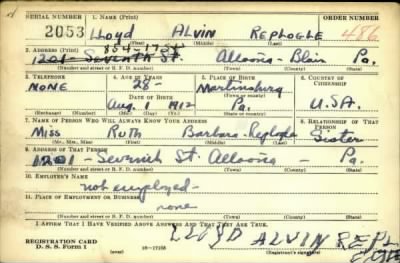 SERIAL NUMBER 1. NAME (Print) ORDER NUMBER
2053 Lloyd ALVIN REPLOGLE 486
(First) (Middle) (Last)
2. ADDRESS (Print) 854-17 St.
1201 - Seventh St. Altoona - Blair Pa.
(Number and street or R. F. D. number) (Town) (County) (State)
3. TELEPHONE 4. AGE IN YEARS 5. PLACE OF BIRTH 6. COUNTRY OF CITIZENSHIP
NONE 28- Martinsburg
DATE OF BIRTH (Town or county)
Aug. 1 1912 Pa. U.S.A.
(Exchange) (Number) (Mo.) (Day) (Yr.) (State or country)
7. NAME OF PERSON WHO WILL ALWAYS KNOW YOUR ADDRESS 8. RELATIONSHIP OF THAT PERSON
Miss Ruth Barbara - Replogle Sister
(Mr., Mrs., Miss) (First) (Middle) (Last)
9. ADDRESS OF THAT PERSON
1201 - Seventh St. Altoona - Pa.
(Number and street or R. F. D. number) (Town) (County) (State)
10. EMPLOYER'S NAME
not employed -
11. PLACE OF EMPLOYMENT OR BUSINESS
none
(Number and street or R. F. D. number) (Town) (County) (State)
I AFFIRM THAT I HAVE VERIFIED ABOVE ANSWERS AND THAT THEY ARE TRUE.
REGISTRATION CARD
D. S. S. Form 1 (over) 16-17105 LLOYD ALVIN REPLOGLE
(Registrant's signature)